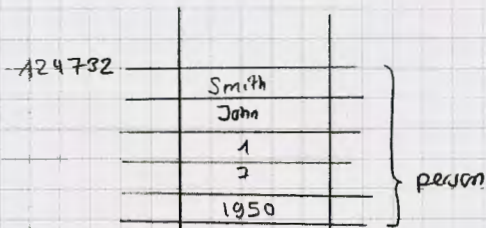 124732
Smith
John
1
7
1950
person